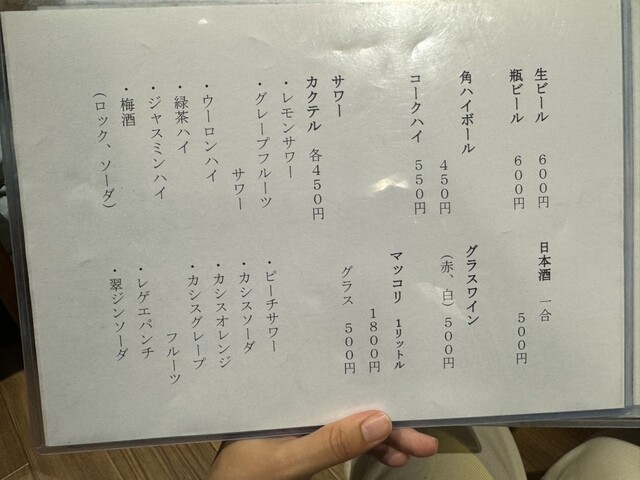 生ビール　６００円
瓶ビール　６００円
角ハイボール
４５０円
コークハイ　５５０円
サワー
カクテル　各４５０円
・レモンサワー
・グレープフルーツ
サワー
・ウーロンハイ
・緑茶ハイ
・ジャスミンハイ
・梅酒
（ロック、ソーダ）
日本酒　一合
５００円
グラスワイン
（赤、白）５００円
マッコリ　１リットル
１８００円
グラス　５００円
・ピーチサワー
・カシスソーダ
・カシスオレンジ
・カシスグレープ
フルーツ
・レゲエパンチ
・翠ジンソーダ